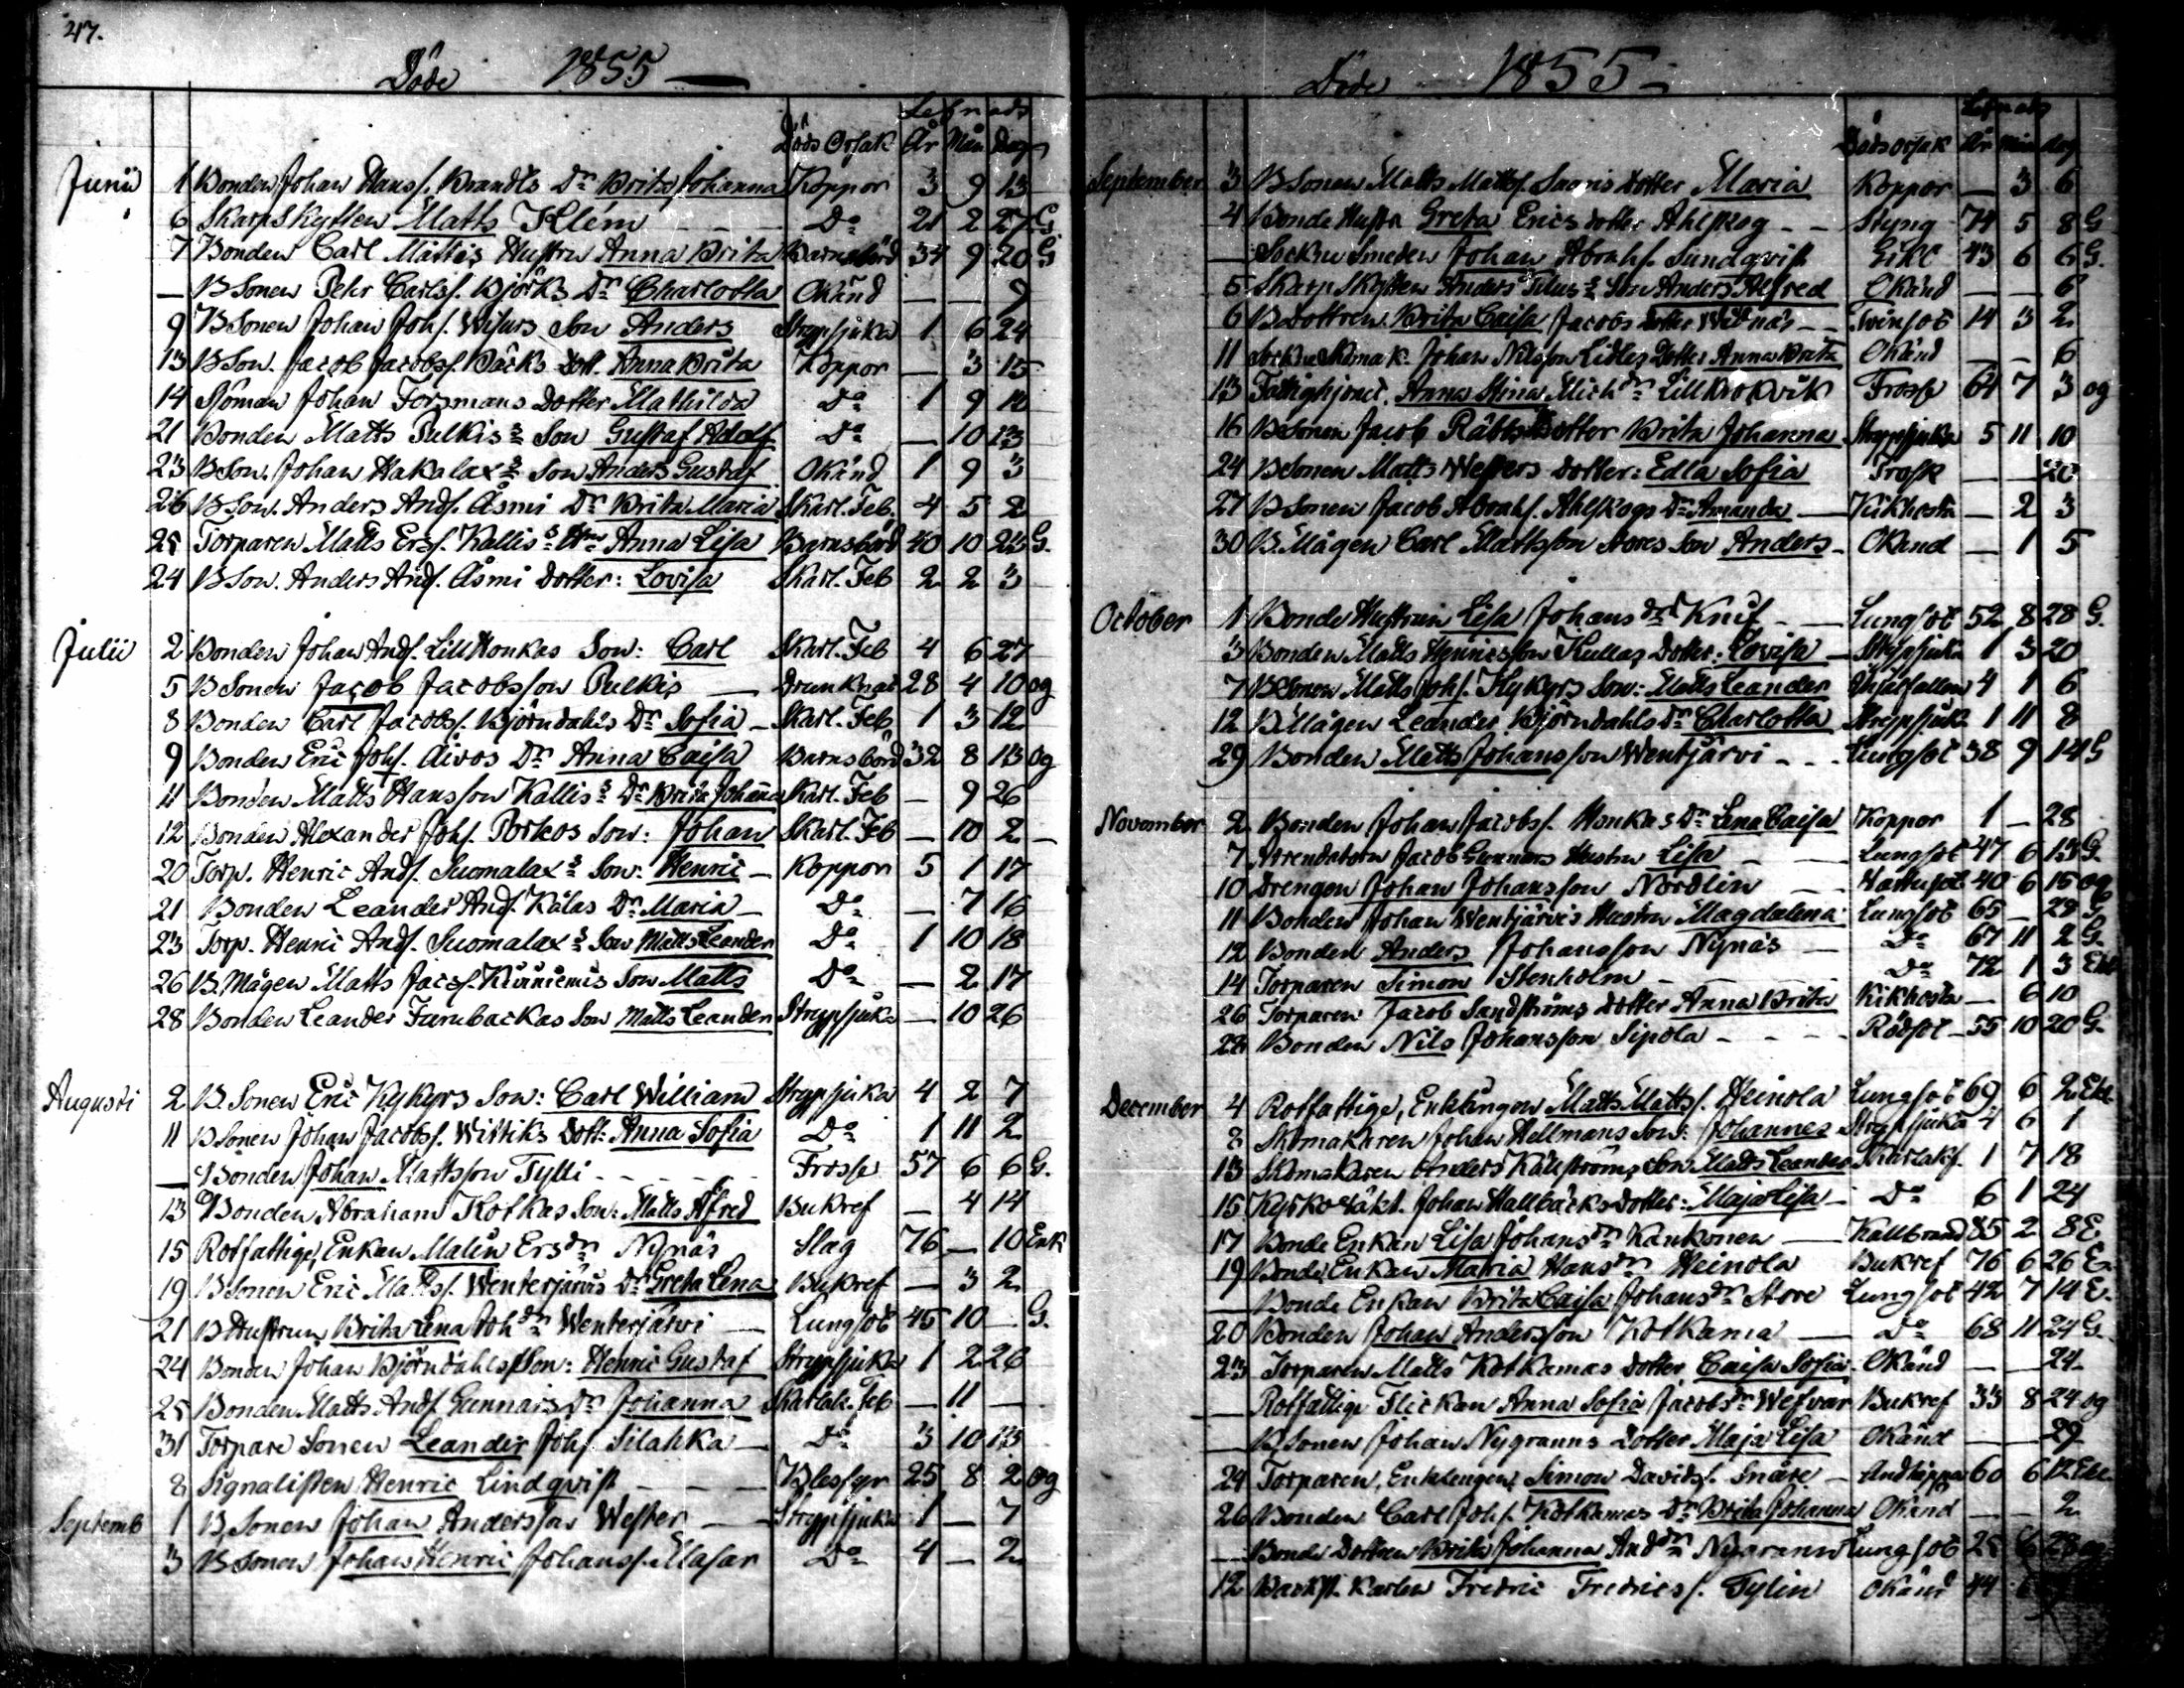 47.
Döde 1855
Lefnads
Döds Orsak År Mån Dag
Junii 1 Bonden Johan Hanss. Brandts Dr Brita Johanna Koppor 3 9 13
6 Skarpskytten Matts Klém Do 21 2 27 G.
7 Bonden Carl Mattis Hustru Anna Brita Barnsbörd 34 9 20 G
— BSonen Pehr Carlss. Björks Dr Charlotta Okänd — — 9
9 BSonen Johan Johs. Son Anders Strypsjuka 1 6 24
13 BSon. Jacob Jacobss. Bäcks Dott. Anna Brita Koppor — 3 15
14 Sjöman Johan Forsmans Dotter Mathilda Do 1 9
21 Bonden Matts Pulkis Son Gustaf Adolf Do — 10 13
23 BSon. Johan Hakalax Son Anders Gustaf Okänd 1 9 3
26 BSon. Anders Ands. Åsmi Dr Brita Maria Skarl. Feb. 4 5 2
25 Torparen Matts Ersf. Kallis Anna Lisa Barnsbörd 40 10 G.
24 BSon. Anders Ands. Åsmi Dotter: Lovisa Skarl. Feb 2 2 3
Julii 2 Bonden Johan Ands. Lill Honkas Son: Carl Skarl. Feb 4 6 27
5 BSonen Jacob Jacobsson Pulkis — Drunknat 28 4 10 og
8 Bonden Carl Jacobs. Björndahls Dr Sofia — Skarl. Feb 1 3 12
9 Bonden Eric Johs. Dr Anna Caisa Barnsbörd 32 8 13 og
11 Bonden Matts Hansson Kallis Dr Brita Johanna Skarl. Feb — 9 26
12 Bonden Alexander Johs. Porkos Son: Johan Skarl. Feb — 10 2 —
20 Torp. Henric Ands. Suomalax Son: Henric — Koppor 5 1 17
21 Bonden Leander Ands. Kålas Dr Maria — Do — 7 16
23 Torp. Henric Ands. Suomalax Son Matts Leander Do 1 10 18
26 B.Mågen Matts Jacs. Kinniemis Son Matts Do — 2 17
28 Bonden Leander Furubackas Son Matts Leander Strypsjuka — 10 26
Augusti 2 B.Sonen Eric Kykyrs Son: Carl William Strypsjuka 4 2 7
11 BSonen Johan Jacobss. Wittiks Dott: Anna Sofia Do 1 11 2
— Bonden Johan Mattsson Tylli - - - Frossa 57 6 6 G.
13 Bonden Abraham Kotkas Son: Matts Alfred Bukref — 4 14
15 Rotfattige, Enkan Malin Ersdr Nynäs Slag 76 — 10 Enk
19 BSonen Eric Matts. Wenterjärvis Dr Greta Lena Bukref — 3 2
21 B Hustrun, Brita Lena Johdr Wenterjärvi — Lungsot 45 10 — G.
24 Bonden Johan Björndahls Son: Henric Gustaf Strypsjuka 1 2 26
25 Bonden Matts Ands. Gunnars Dr Johanna Skarlak. Feb — 11 —
31 Torpare Sonen Leander Johs. Silahka — Do 3 10 13
8 Signalisten Henric Lindqvist - - - Blessyr 25 8 2 og
Septemb 1 B.Sonen Johan Andersson Wester — Strypsjuka 1 — 7
3 BSonen Johan Henric Johanss. Masar Do 4 — 2
Döde 1855
Lefnads
Dödsorsak År Mån dag
September 3 BSonen Matts Matts. Saaris Dotter Maria Koppor — 3 6
4 Bonde Hustr. Greta Erics dotter Ahlskog - - Styng 74 5 8 G
— Socknesmeden Johan Abrahs. Sundqvist Gikt 43 6 6 G.
5 Skarpskytten Anders Son Anders Alfred Okänd — — 6
6 BDottren. Brita Caisa Jacobs dotter Widnäs - - Tvinsot 14 3 2
11 Sockneskomak. Johan Nilsson Lidles Dotter Anna Brita Okänd — — 6
13 Fattighjonet. Anna Stina Michdr Lillkrokvik Frossa 64 7 3 og
16 BSonen Jacob Rätts Dotter Brita Johanna Strypsjuka 5 11 10
24 BSonen Matts Westers dotter: Edla Sofia Trosk — — 20
27 BSonen Jacob Abrahs. Ahlskogs Dr Amanda — Kikhosta — 2 3
30 B.Mågen Carl Mattsson Stores Son Anders - Okänd — 1 5
October 1 Bonde Hustrun Lisa Johansdr Knif - — Lungsot 52 8 28 G.
3 Bonden Matts Henricsson Kullas Dotter: Lovisa — Strypsjuka 1 3 20
7 BSonen Matts Johs. Kykyrs Son: Matts Leander Ihjälfallen 4 1 6
12 B.Mågen Leander Björndahls Dr Charlotta Strypsjuk. 1 11 8
29 Bonden Matts Johansson Wentjärvi - - Lungsot 38 9 14 G
November 2 Bonden Johan Jacobss. Honkas Dr Lena Caisa Koppor 1 — 28
7 Arrendatorn Jacob Gunnars Hustru Lisa - — Lungsot 47 6 13 G.
10 Drengen Johan Johansson Nordlin — Wattusot 40 6 15 og
11 Bonden Johan Wentjärvis Hustru Magdalena Lungsot 65 — 28 G
12 Bonden Anders Johansson Nynäs — Do 67 11 2 G.
14 Torparen Simon Stenholm - - - Do 72 1 3
26 Torparen Jacob Sandströms Dotter Anna Brita Kikhosta — 6 10
28 Bonden Nils Johansson Sipola - - - Rödsot 55 10 20 G.
December 4 Rotfattige, Enklingen Matts Matts. Heinola Lungsot 69 6 2
8 Skomakaren Johan Hellmans Son: Johannes Strypsjuka 4 6 1
13 Skomakaren Anders Källströms Son Matts Leander Skarlakf. 1 7 18
15 Kyrkoväkt. Johan Hallbäcks Dotter: Maja Lisa — Do 6 1 24
17 Bonde Enkan Lisa Johansdr Kankonen — Kallbrand 85 2 8 E
19 Bonde, Enkan Maria Hansdr Heinola Bukref 76 6 26 E.
— Bonde Enkan Brita Caisa Johansdr Store Lungsot 42 7 14 E.
20 Bonden Johan Andersson Kotkama — Do 68 11 24 G.
23 Torparen Matts Kotkamas Dotter Caisa Sofia - Okänd — — 24
— Rotfattige Flickan Anna Sofia Jacobsdr Wefvar Bukref 33 8 24 og
— B.Sonen Johan Nygranns Dotter Maja Lisa Okänd — — 29
24 Torparen, Enklingen, Simon Davids. Snåre — Andtäppa 60 6 12
26 Bonden Carl Johs. Kotkamas Dr Brita Johanna Okänd — — 2
— Bonde Dottren Brita Johanna Anddr Nygrann Lungsot 25 6 28 og
12 Karlen Fredric Fredricss. Tylin Okänd 44